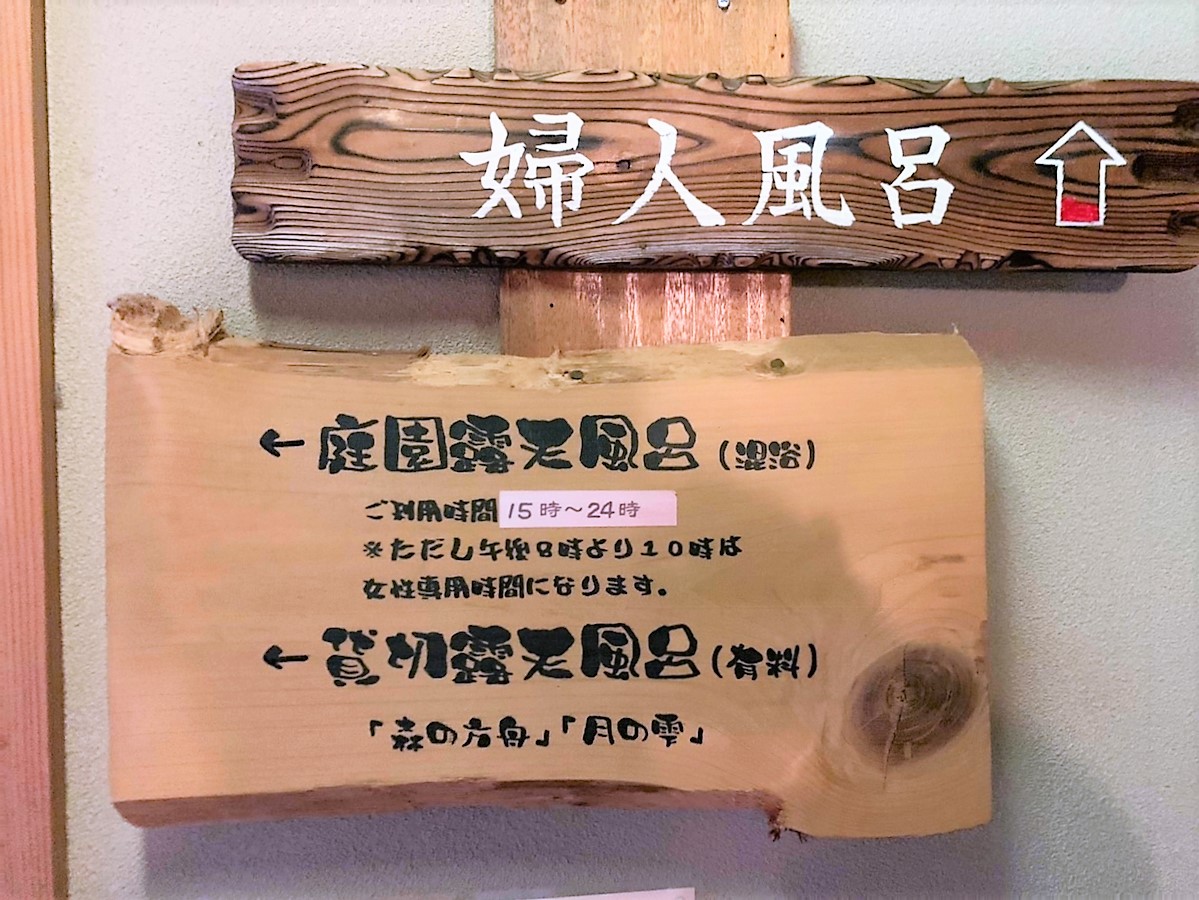 婦人風呂 ⇧
←庭園露天風呂(混浴)
ご利用時間 15時～24時
※ただし午後8時より10時は
女性専用時間になります。
←貸切露天風呂(有料)
「森の方舟」「月の雫」